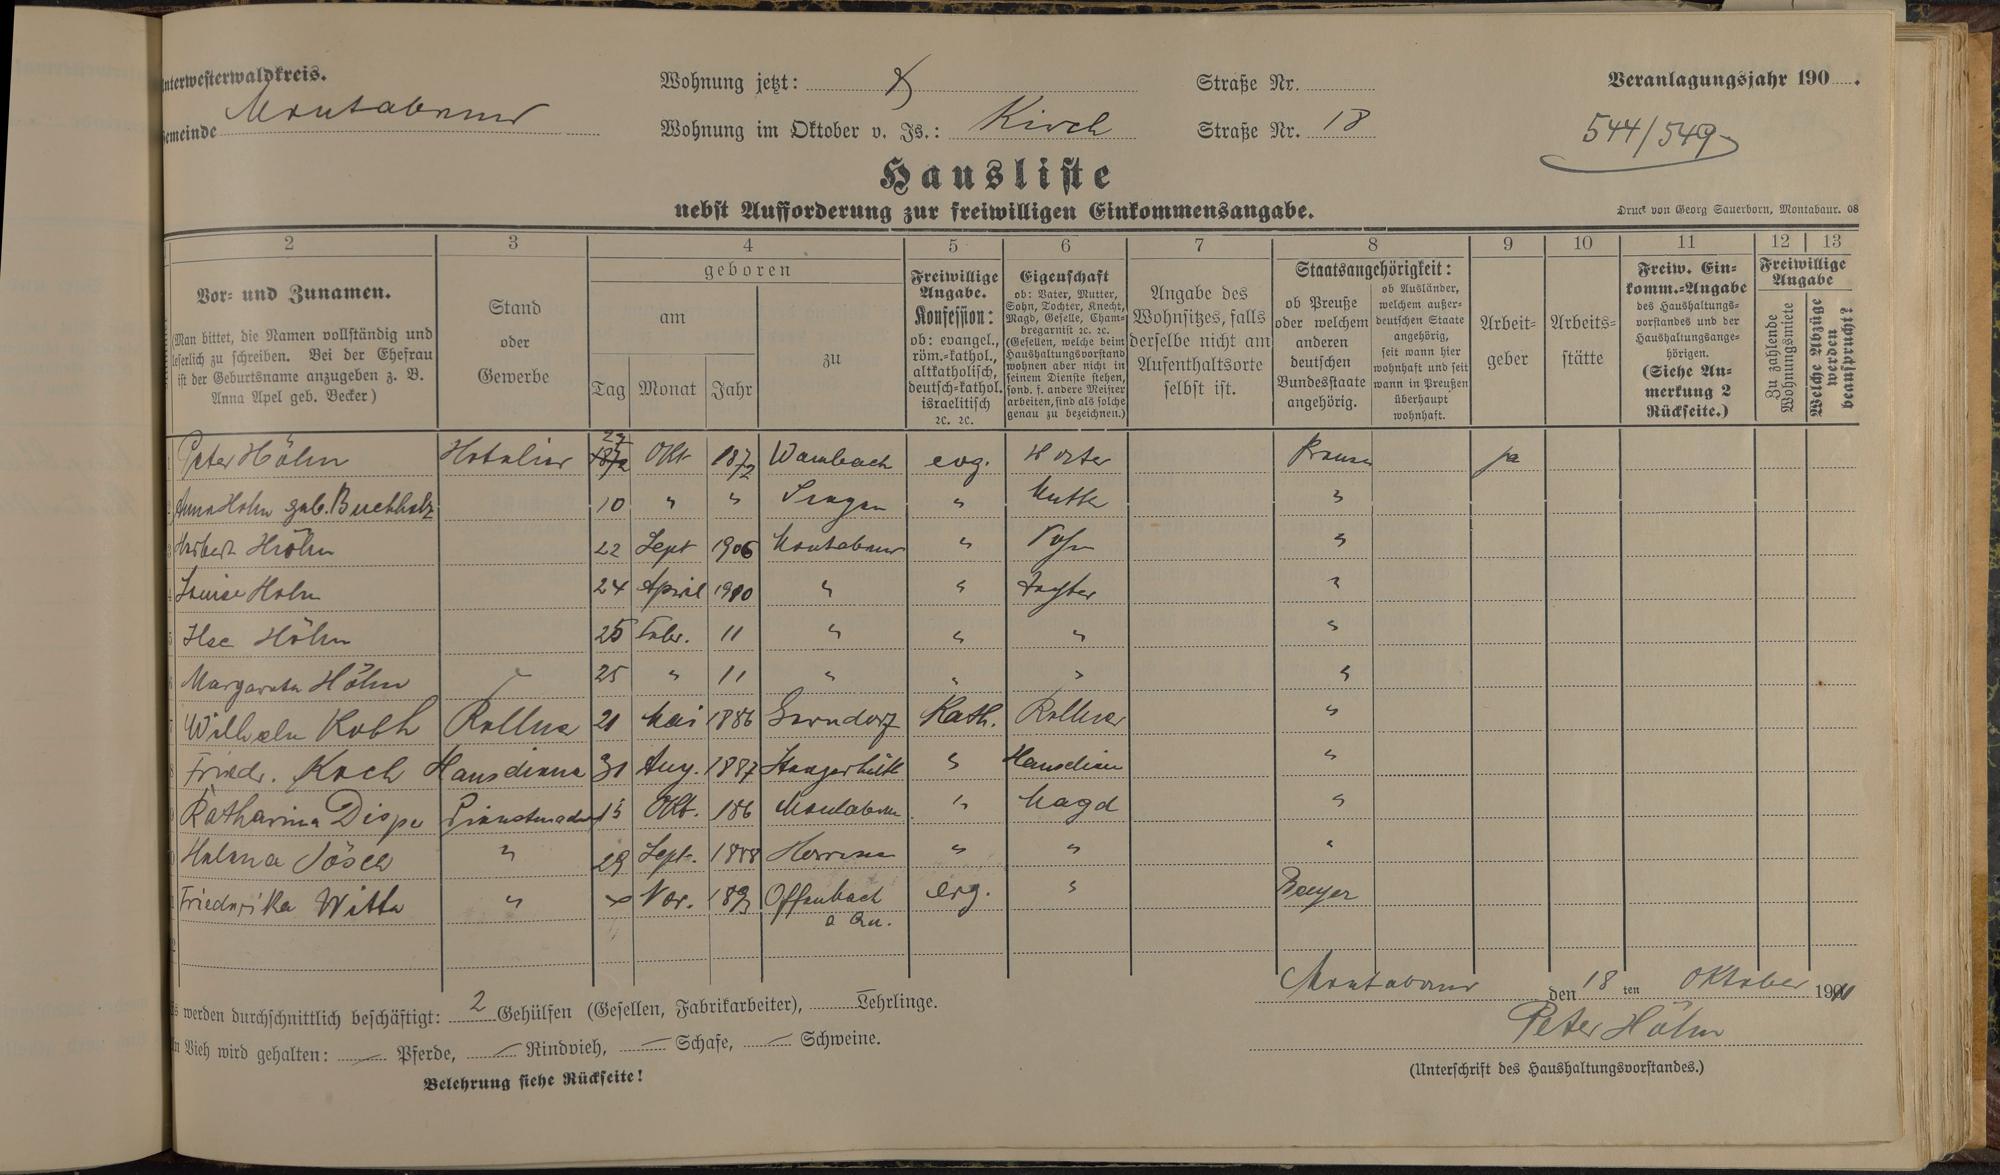 Unterwesterwaldkreis.
Wohnung jetzt: Straße Nr.
Veranlagungsjahr 190 .
Gemeinde Montabaur
Wohnung im Oktober v. Js.: Kirch Straße Nr. 18
544/549
Hausliste
nebst Aufforderung zur freiwilligen Einkommensangabe.
Druck von Georg Sauerborn, Montabaur. 08
2 3 4 5 6 7 8 9 10 11 12 13
Vor- und Zunamen.
(Man bittet, die Namen vollständig und
leserlich zu schreiben. Bei der Ehefrau
ist der Geburtsname anzugeben z. B.
Anna Apel geb. Becker)
Stand
oder
Gewerbe
geboren
am
Tag Monat Jahr
zu
Freiwillige
Angabe.
Konfession:
ob: evangel.,
röm.-kathol.,
altkatholisch,
deutsch-kathol.
israelitisch
2c. 2c.
Eigenschaft
ob: Vater, Mutter,
Sohn, Tochter, Knecht,
Magd, Geselle, Cham-
bregarnist 2c. 2c.
(Gesellen, welche beim
Haushaltungsvorstand
wohnen aber nicht in
seinem Dienste stehen,
sond. f. andere Meister
arbeiten, sind als solche
genau zu bezeichnen.)
Angabe des
Wohnsitzes, falls
derselbe nicht am
Aufenthaltsorte
selbst ist.
Staatsangehörigkeit:
ob Preuße
oder welchem
anderen
deutschen
Bundesstaate
angehörig.
ob Ausländer,
welchem außer-
deutschen Staate
angehörig,
seit wann hier
wohnhaft und seit
wann in Preußen
überhaupt
wohnhaft.
Arbeit-
geber
Arbeits-
stätte
Freiw. Ein-
komm.-Angabe
des Haushaltungs-
vorstandes und der
Haushaltungsange-
hörigen.
(Siehe An-
merkung 2
Rückseite.)
Freiwillige
Angabe
Zu zahlende
Wohnungsmiete
Welche Abzüge
werden
beansprucht?
1 Peter Höhn Hotelier 27 Okt 1872 Wambach evg. Vater Preuße ja
2 Anna Höhn geb. Buchholz 10 " " Singen " Mutter "
3 Herbert Höhn 22 Sept 1906 Montabaur " Sohn "
4 Louise Höhn 24 April 1910 " " Tochter "
5 Ilse Höhn 25 Febr. 11 " " " "
6 Margareta Höhn 25 " 11 " " " "
7 Wilhelm Roth Kellner 21 Mai 1886 Kath. Kellner "
8 Friedr. Koch Hausdiener 31 Aug. 1887 " Hausdiener "
9 Katharina Dienstmädch 15 Okt. 186 Montabaur " Magd "
10 Helena " 29 Sept. 1888 " " "
11 Friederika Witte " Nov. 189 Offenbach evg. " Bayer
a Qu.
12
Es werden durchschnittlich beschäftigt: 2 Gehülfen (Gesellen, Fabrikarbeiter), Lehrlinge.
An Vieh wird gehalten: — Pferde, — Rindvieh, — Schafe, — Schweine.
Belehrung siehe Rückseite!
Montabaur den 18 ten Oktober 1911
Peter Höhn
(Unterschrift des Haushaltungsvorstandes.)